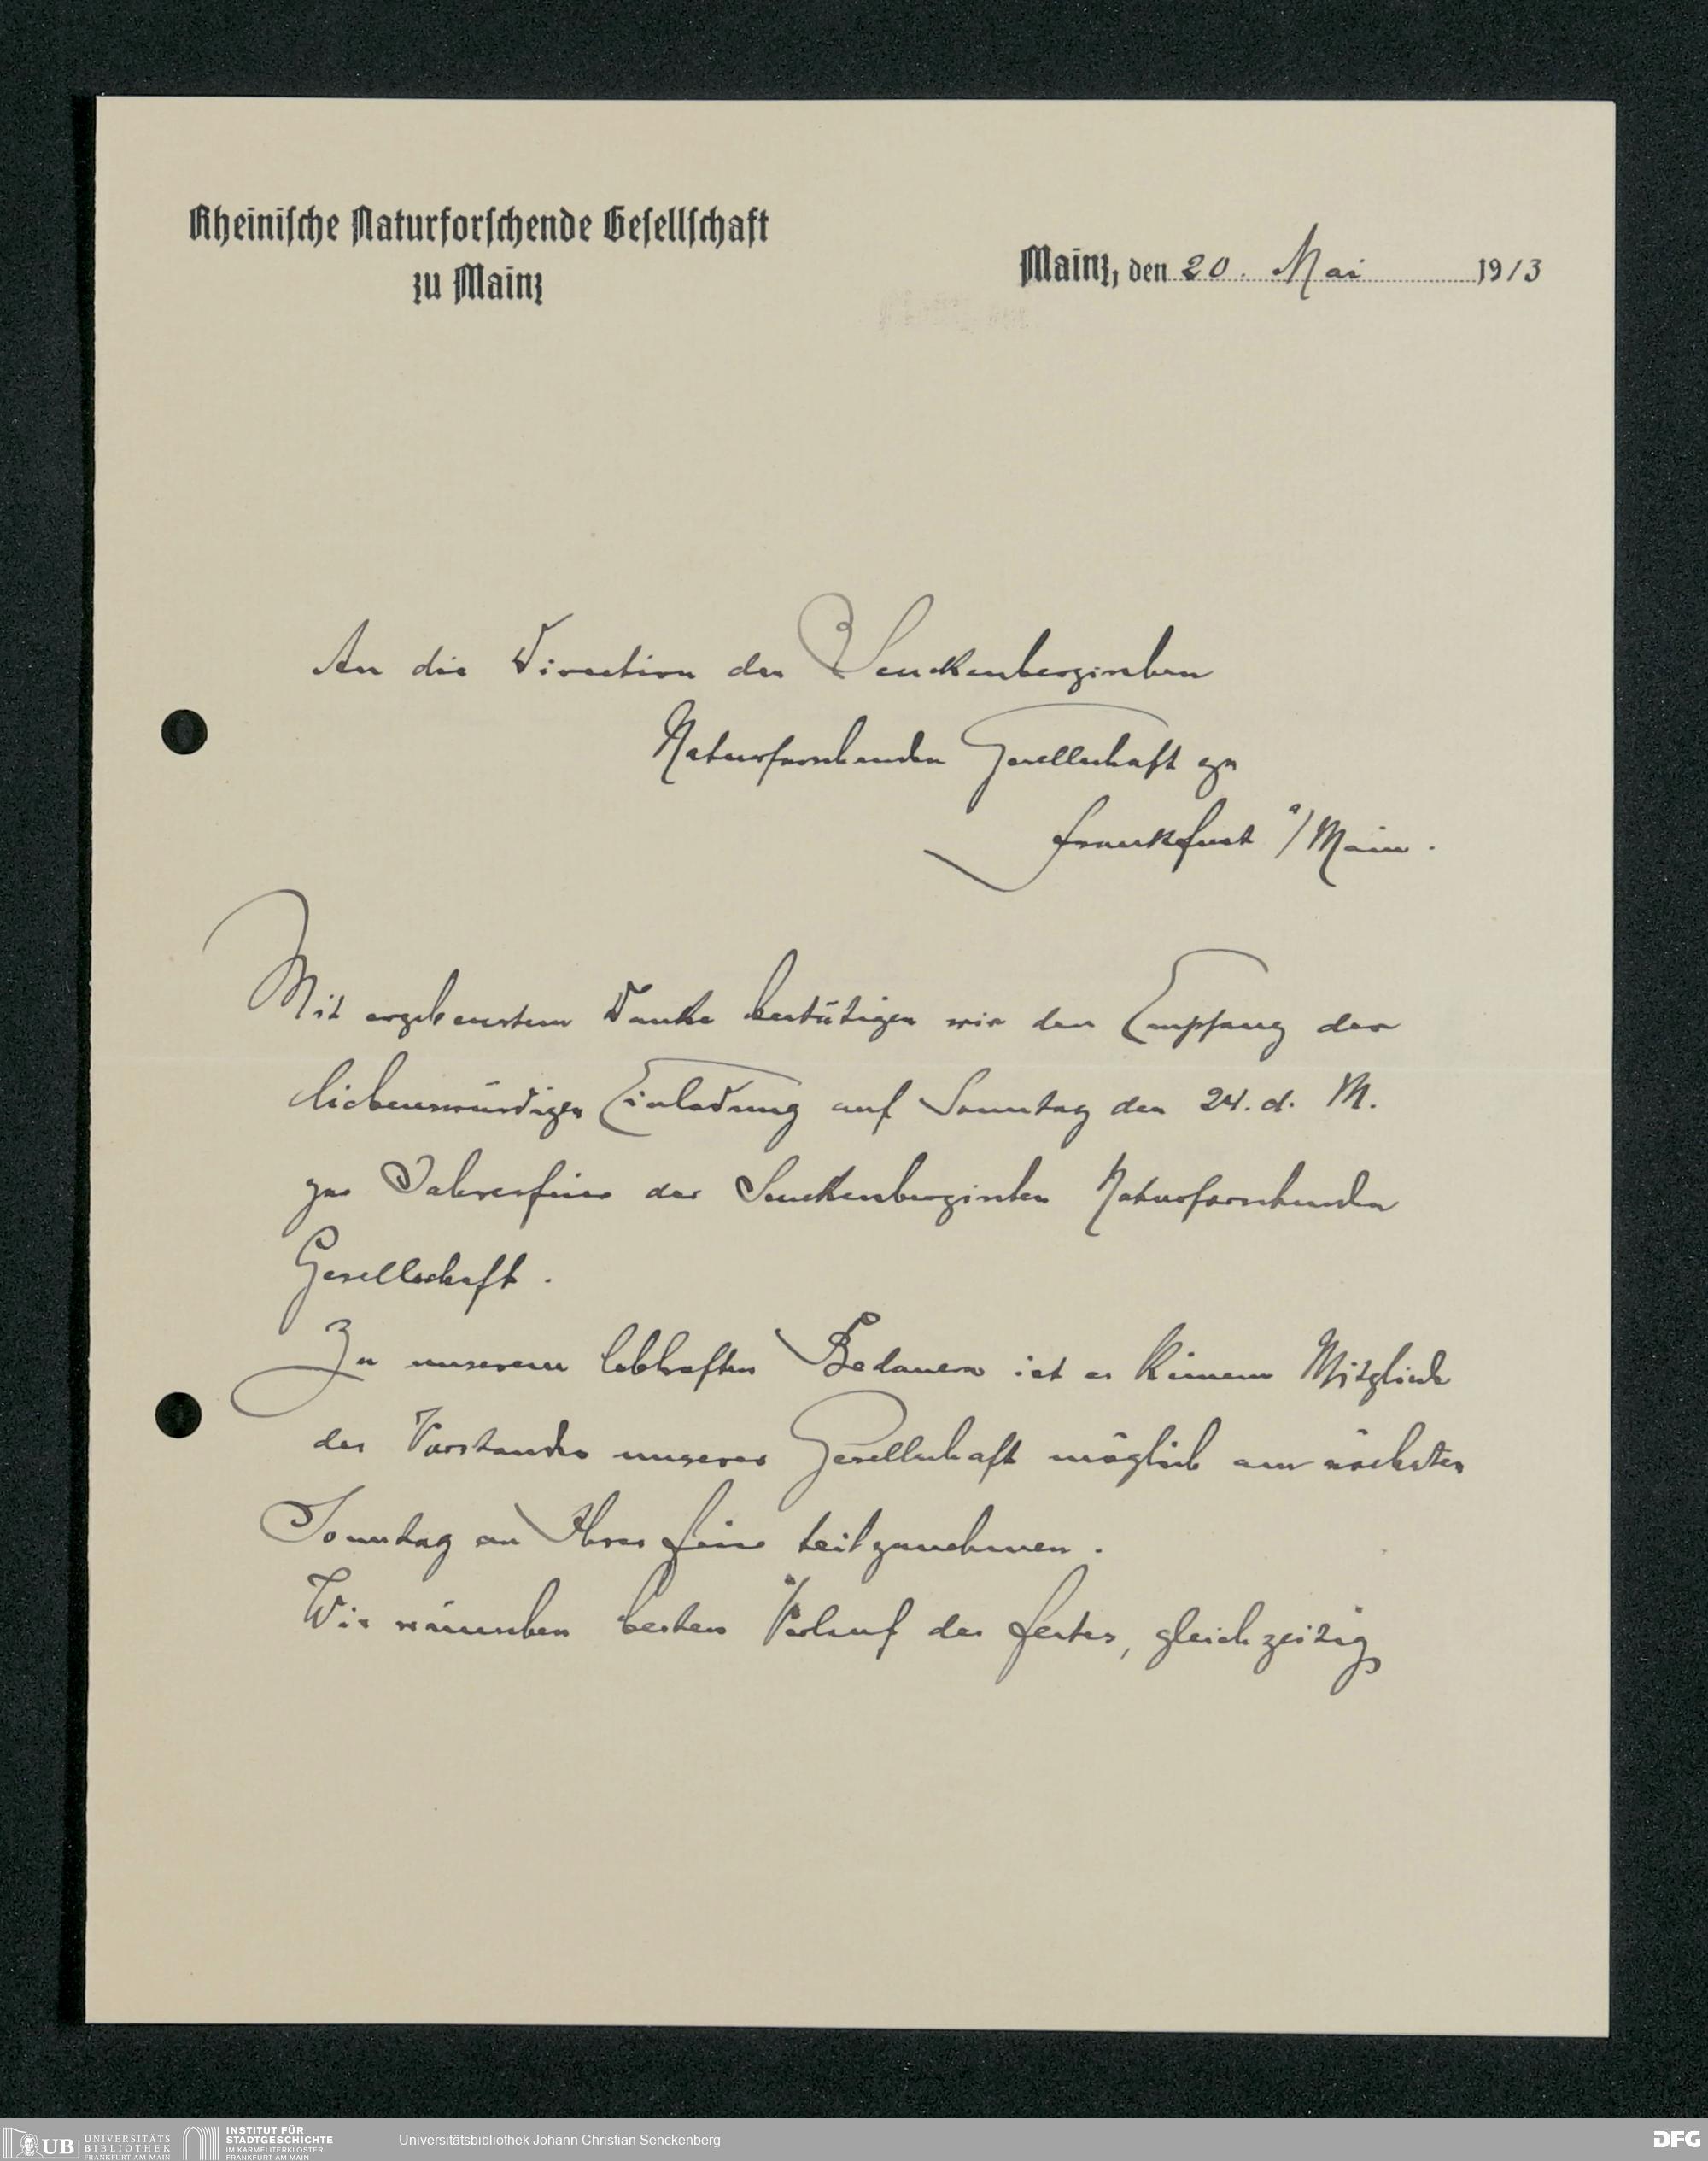 Rheinische Naturforschende Gesellschaft
zu Mainz
Mainz, den 20. Mai 1913
An die Direction der Senckenbergischen
Naturforschenden Gesellschaft zu
Frankfurt a/Main.
Mit ergebenstem Danke bestätigen wir den Empfang der
liebenswürdigen Einladung auf Sonntag den 24. d. M.
zur Jahresfeier der Senckenbergischen Naturforschenden
Gesellschaft.
Zu unserem lebhaften Bedauern ist es keinem Mitgliede
des Vorstandes unserer Gesellschaft möglich am nächsten
Sonntag an Ihrer Feier teilzunehmen.
Wir wünschen besten Verlauf des Festes, gleichzeitig
UB UNIVERSITÄTS
BIBLIOTHEK
FRANKFURT AM MAIN
INSTITUT FÜR
STADTGESCHICHTE
IM KARMELITERKLOSTER
FRANKFURT AM MAIN
Universitätsbibliothek Johann Christian Senckenberg
DFG